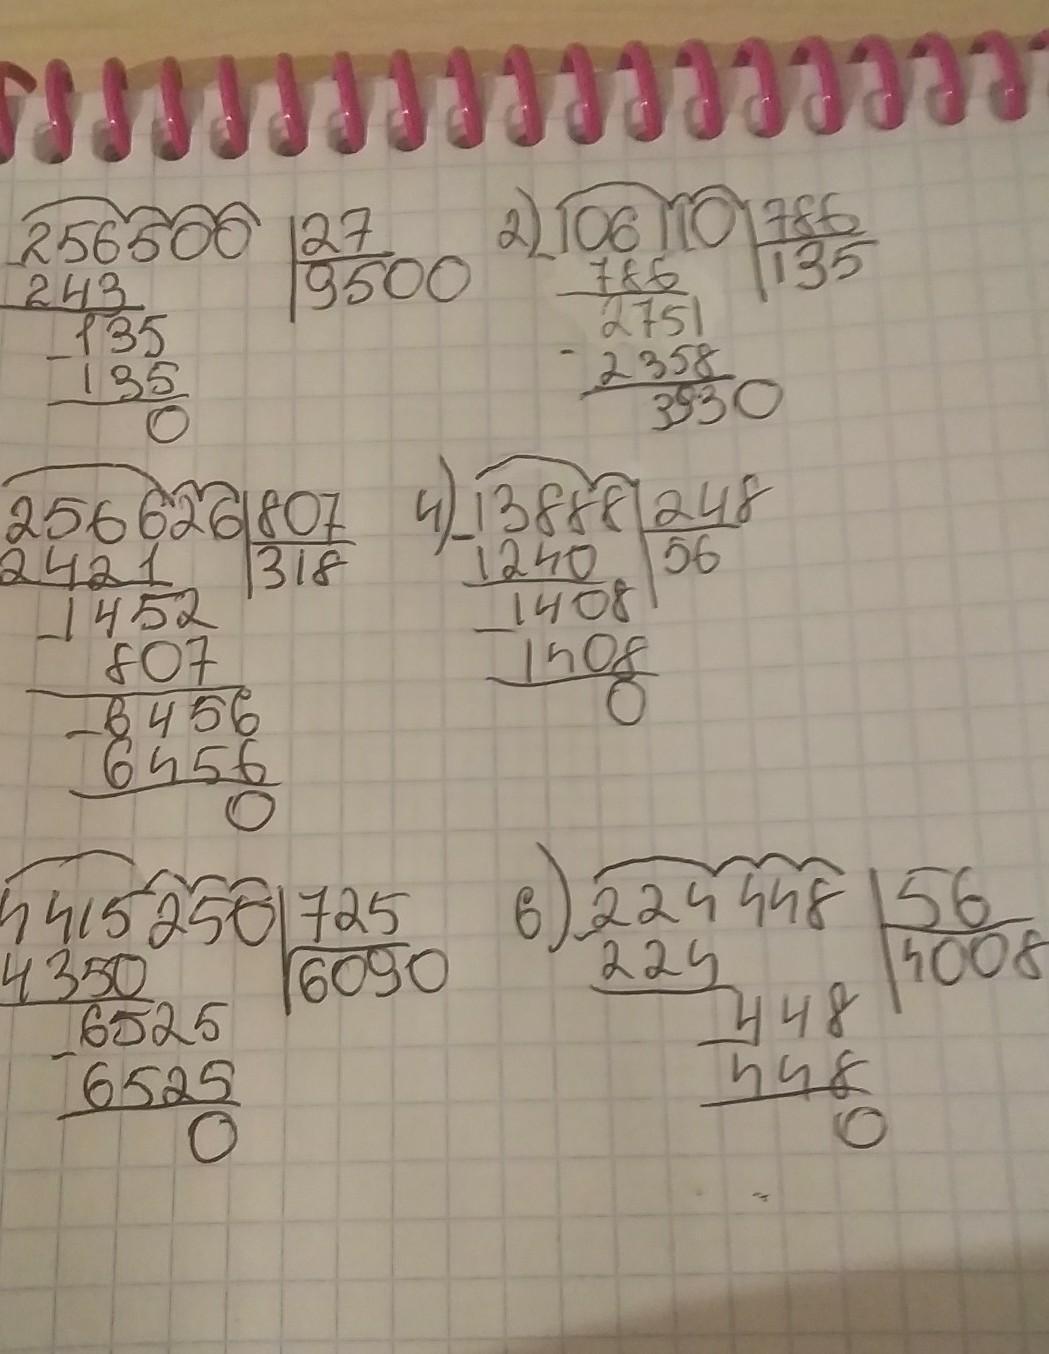 256500 | 27
243 9500
- 135
135
0
2) - 106110 | 786
786 135
2751
- 2358
3930
256626 | 807
2421 318
- 1452
807
- 6456
6456
0
4) - 13888 | 248
1240 56
- 1408
1408
0
4415250 | 725
4350 6090
- 6525
6525
0
6) - 224448 | 56
224 4008
- 448
448
0